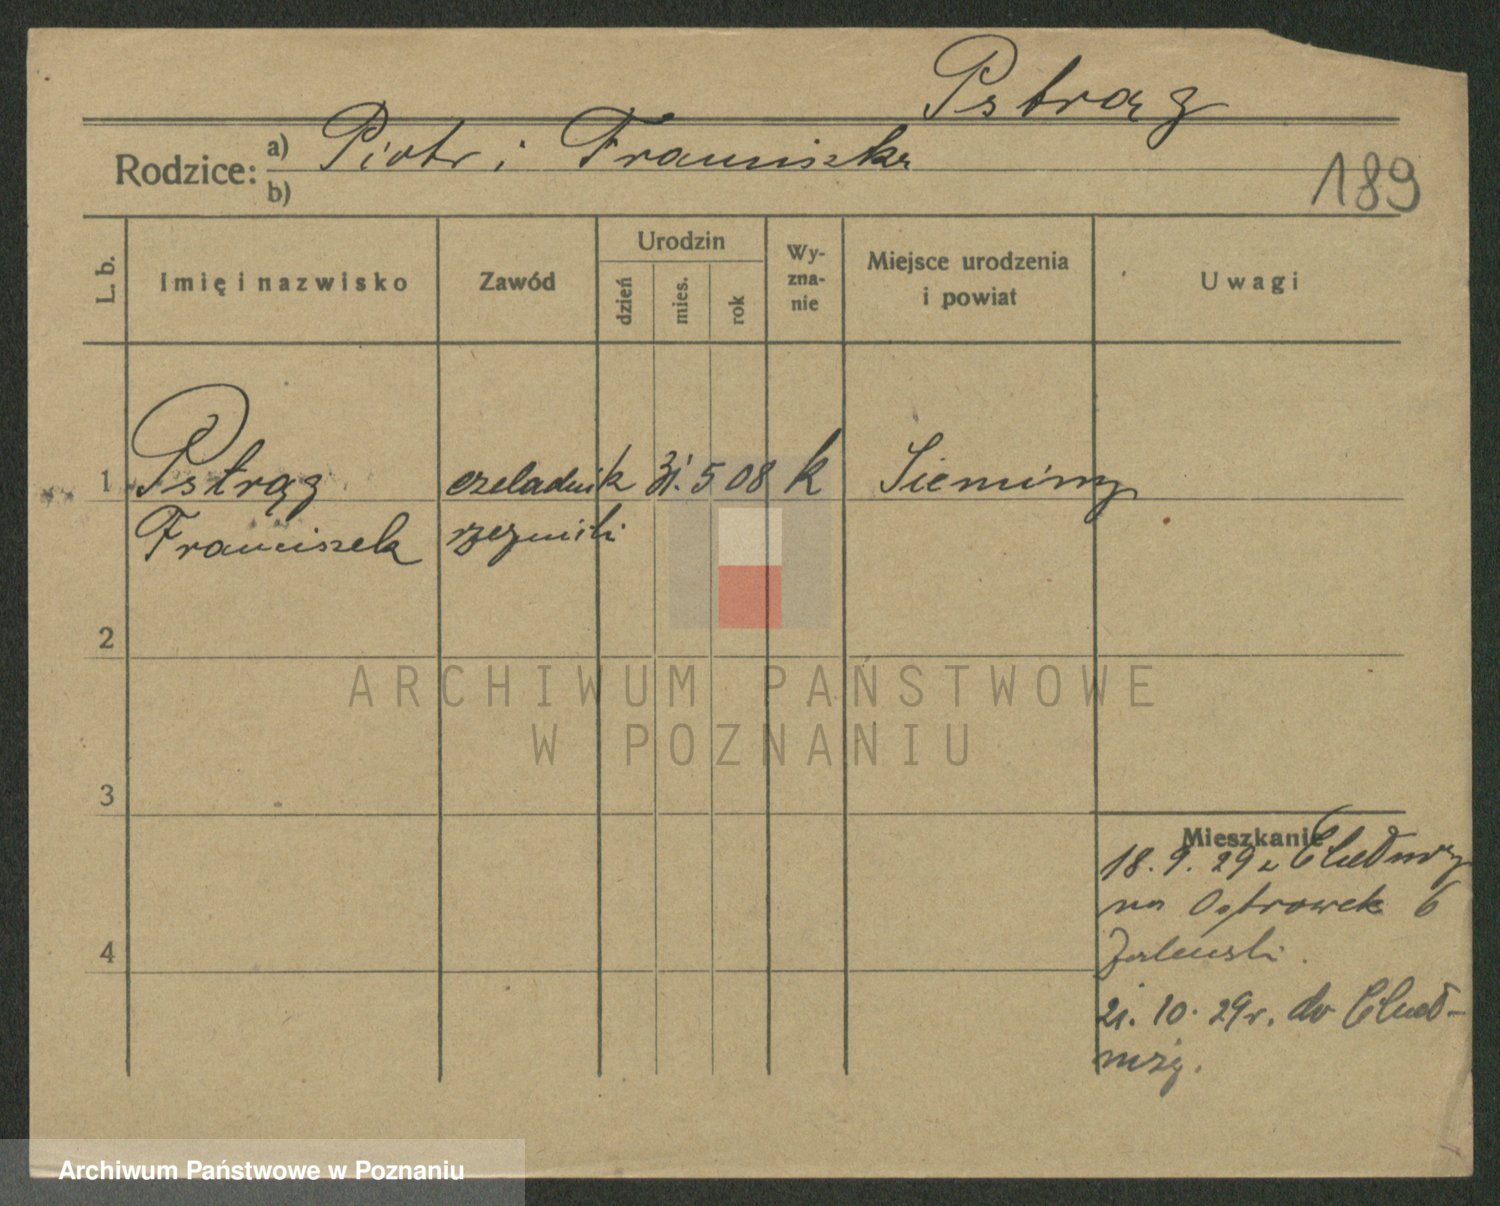 Pstrąg
Rodzice: a) Piotr i Franciszka
b)
189
L. b.
Imię i nazwisko
Zawód
Urodzin
dzień
mies.
rok
Wy-
zna-
nie
Miejsce urodzenia
i powiat
Uwagi
1 Pstrąg czeladnik 31. 5 08 k
Franciszek rzeźnicki
2
ARCHIWUM PAŃSTWOWE
W POZNANIU
3
Mieszkanie
18. 9. 29 z
na Ostrówek 6
Zalewski.
4
21. 10. 29 r. do
Archiwum Państwowe w Poznaniu